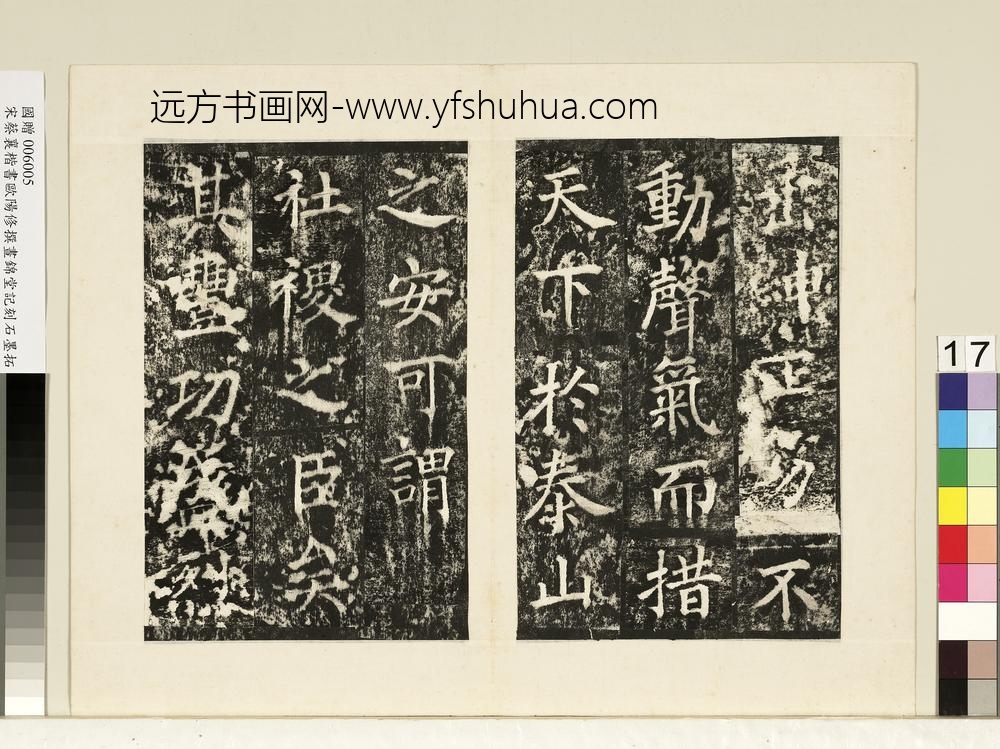 远方书画网-www.yfshuhua.com
國贈006005
宋蔡襄楷書歐陽修撰晝錦堂記刻石墨拓
17
垂紳正笏不
動聲氣而措
天下於泰山
之安可謂
社稷之臣矣
其豐功